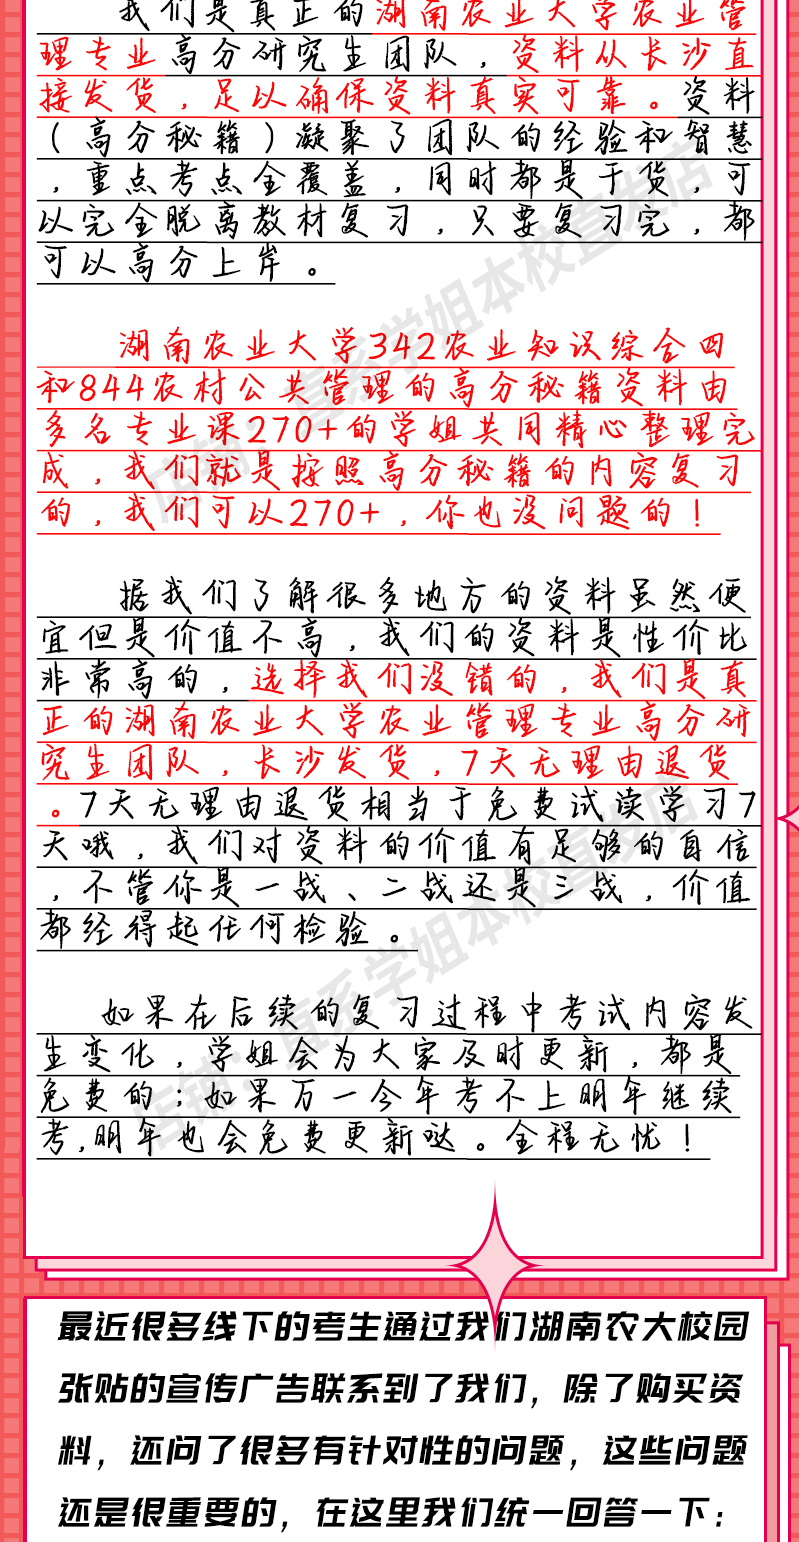 我们是真正的湖南农业大学农业管
理专业高分研究生团队，资料从长沙直
接发货，足以确保资料真实可靠。资料
（高分秘籍）凝聚了团队的经验和智慧
，重点考点全覆盖，同时都是干货，可
以完全脱离教材复习，只要复习完，都
可以高分上岸。
湖南农业大学342农业知识综合四
和844农村公共管理的高分秘籍资料由
多名专业课270+的学姐共同精心整理完
成，我们就是按照高分秘籍的内容复习
的，我们可以270+，你也没问题的！
据我们了解很多地方的资料虽然便
宜但是价值不高，我们的资料是性价比
非常高的，选择我们没错的，我们是真
正的湖南农业大学农业管理专业高分研
究生团队，长沙发货，7天无理由退货
。7天无理由退货相当于免费试读学习7
天哦，我们对资料的价值有足够的自信
，不管你是一战、二战还是三战，价值
都经得起任何检验。
如果在后续的复习过程中考试内容发
生变化，学姐会为大家及时更新，都是
免费的；如果万一今年考不上明年继续
考,明年也会免费更新哒。全程无忧！
店铺：直系学姐本校直发店
店铺：直系学姐本校直发店
最近很多线下的考生通过我们湖南农大校园
张贴的宣传广告联系到了我们，除了购买资
料，还问了很多有针对性的问题，这些问题
还是很重要的，在这里我们统一回答一下：